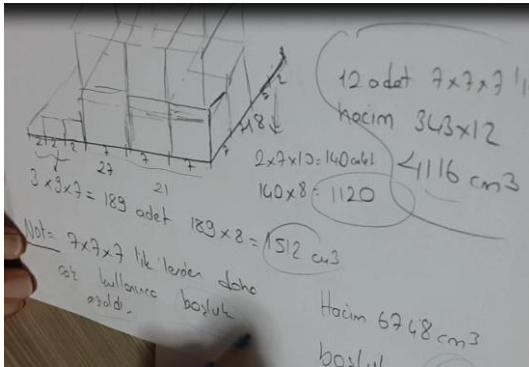 12 adet 7x7x7'li
hacim 343x12
4116 cm3
18
2 2 2 7 7 7
27 21
2x7x10=140 adet
140x8=1120
3x9x7=189 adet 189x8=1512 cm3
Not= 7x7x7 lik'lerden daha
çok kullanınca boşluk
azaldı.
Hacim 6748 cm3
boşluk